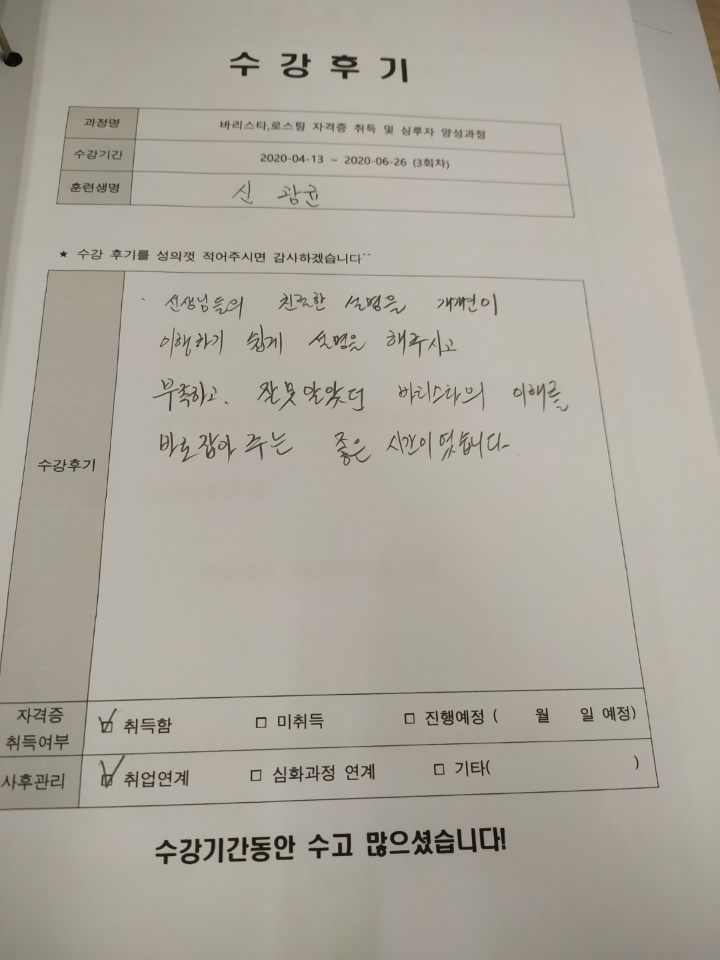 수강후기
과정명 바리스타,로스팅 자격증 취득 및 실무자 양성과정
수강기간 2020-04-13 ~ 2020-06-26 (3회차)
훈련생명 신광균
★ 수강 후기를 성의껏 적어주시면 감사하겠습니다^^
선생님들의 친절한 설명을 개개인이
이행하기 쉽게 설명을 해주시고
부족하고. 잘못알았던 바리스타의 이해를
수강후기
바로잡아 주는 좋은 시간이였습니다-
자격증 취득여부 ☑ 취득함 □ 미취득 □ 진행예정 ( 월 일 예정)
사후관리 ☑ 취업연계 □ 심화과정 연계 □ 기타( )
수강기간동안 수고 많으셨습니다!